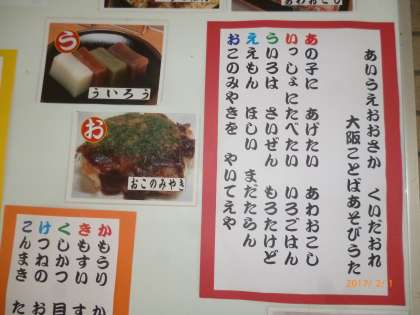 あわおこし
う
ういろう
お
おこのみやき
あいうえおおさか くいたおれ
大阪ことばあそびうた
あの子に あげたい あわおこし
いっしょにたべたい いろごはん
ういろは さいぜん もろたけど
ええもん ほしい まだたらん
おこのみやきを やいてえや
かもうり か
きもすい す
くしかつ 目
けつねの お
こんまき た
2017/ 2/ 1